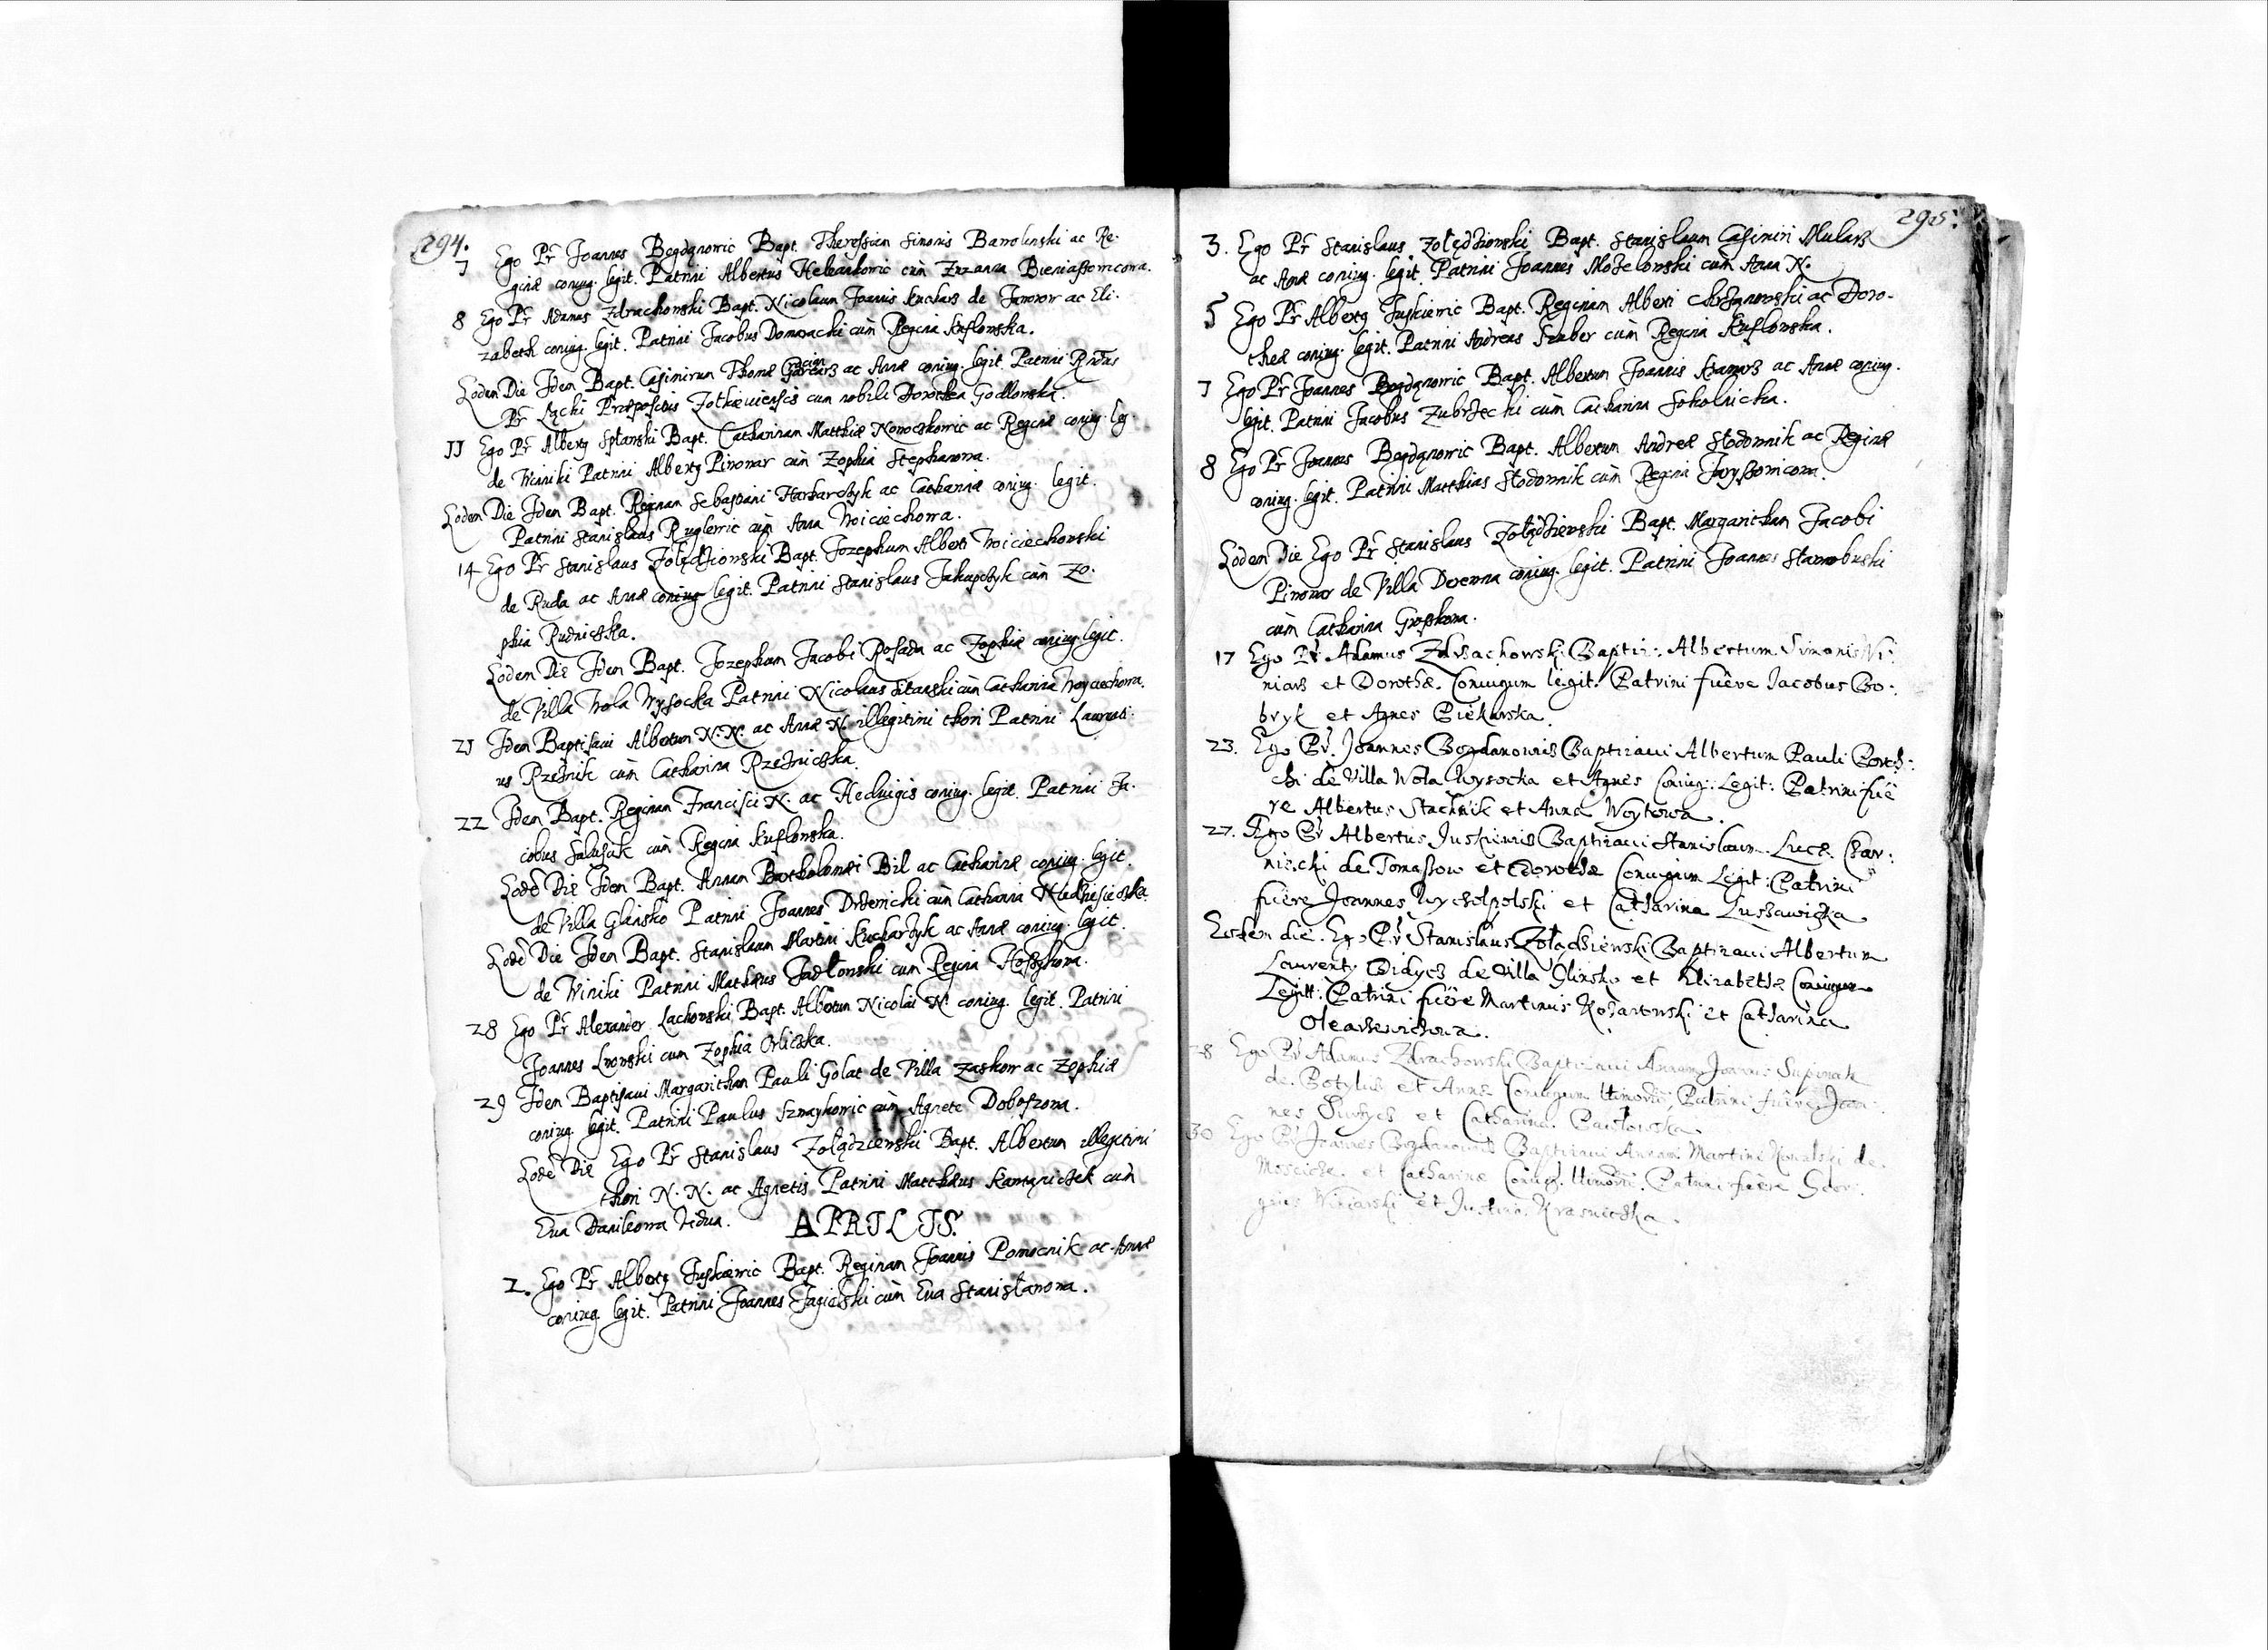 294.
7 Ego Pr Joannes Bogdanowic Bapt. Theressiam Simonis Bawolinski ac Re-
ginæ coniug. legit. Patrini Albertus cùm Zuzanna
8 Ego Pr Adamus Zdrachowski Bapt. Nicolaum Joannis Kuchars de Jaworow ac Eli-
zabeth coniug. legit. Patrini Jacobus Domaracki cùm Regina Kuflowska.
Eodem Die Idem Bapt. Casimirum Thomæ ac Annæ coniug. legit. Patrini
Pr Łącki Præpositus Zolkieuiensis cum nobili Dorothea Godlowska.
11 Ego Pr Alberty Splawski Bapt. Catharinam Matthiæ ac Reginæ coniug. leg.
de Winniki Patrini Alberty Piwowar cùm Zophia Stephanowa.
Eodem Die Idem Bapt. Reginam Sebastiani ac Catharinæ coniug. legit.
Patrini Stanislaus cùm Anna Woiciechowa.
14 Ego Pr Stanislaus Zolędziowski Bapt. Jozephum Alberti Woiciechowski
de Ruda ac Annæ coniug legit. Patrini Stanislaus Jakupczyk cùm Zo-
phia Rudniczka.
Eodem Die Idem Bapt. Jozephum Jacobi Rosada ac Zophiæ coniug. legit.
de Villa Wola Wysocka Patrini Nicolaus cùm Catharina Woyciechowa.
21 Idem Baptisaui Albertum N. N. ac Annæ N. illegitimi thori Patrini Laurenti-
us Rzeznik cùm Catharina Rzezniczka.
22 Idem Bapt. Reginam Francisci N. ac Hedwigis coniug. legit. Patrini Ja-
cobus cùm Regina Kuflowska.
Eodē Die Idem Bapt. Annam Bartholomæi Bil ac Catharinæ coniug. legit.
de Villa Glinsko Patrini Joannes cùm Catharina
Eodē Die Idem Bapt. Stanislaum Martini Kucharzyk ac Annæ coniug. legit.
de Winiki Patrini Mathæus Jadłowski cum Regina
28 Ego Pr Alexander Lachowski Bapt. Albertum Nicolai N. coniug. legit. Patrini
Joannes Lwowski cum Zophia Orliczka.
29 Idem Baptisaui Margaritham Pauli Golat de Villa Zaskow ac Zophiæ
coniug. legit. Patrini Paulus Sznaykowic cùm Agnete Doboszowa.
Eodē Die Ego Pr Stanislaus Zolądzienski Bapt. Albertum illegitimi
thori N. N. ac Agnetis Patrini Matthæus cùm
Eua Danikowa Vidua.
APRILIS.
2. Ego Pr Alberty Juskiewic Bapt. Reginam Joannis Pomocnik ac Annæ
coniug. legit. Patrini Joannes Jagielski cùm Eua Stanisławowa.
295.
3. Ego Pr Stanislaus Zolędziowski Bapt. Stanislaum Casimiri Mulars
ac Annæ coniug. legit. Patrini Joannes Mozelowski cùm Anna N.
5 Ego Pr Alberty Juskiewic Bapt. Reginam Alberti Chrzanowski ac Doro-
theæ coniug. legit. Patrini Andreas Szaber cùm Regina Kuflowska.
7 Ego Pr Joannes Bogdanowic Bapt. Albertum Joannis Kramars ac Annæ coniug.
legit. Patrini Jacobus Zubrzecki cùm Catharina Sokolnicka.
8 Ego Pr Joannes Bogdanowic Bapt. Albertum Andreæ Słodownik ac Reginæ
coniug. legit. Patrini Matthias Słodownik cùm Regina
Eodem Die Ego Pr Stanislaus Zolądzienski Bapt. Margaritham Jacobi
Piwowar de Villa Derewna coniug. legit. Patrini Joannes
cùm Catharina
17 Ego Pr Adamus Zdrachowski Baptiz: Albertum Simonis Wi-
niars et Dorothæ. Coniugum legit. Patrini fuêre Jacobus Bo-
bryk et Agnes Piekarska.
23. Ego Pr. Joannes Bogdanowis Baptizaui Albertum Pauli
de Villa Wola Wysocka et Agnes Coniug: Legit: Patrini fuê
re Albertus Stachnik et Anna Woytowa.
27. Ego Pr Albertus Juskiewis Baptizaui Stanislaum. Lucæ Czar-
niecki de Tomassow et Dorothæ Coniugum Legit: Patrini
fuêre Joannes et Catharina
Eodem die. Ego Pr Stanislaus Zołądziewski Baptizaui Albertum
Laurenty Didych de Villa Glinsko et Elizabethæ Coniugum
Legitt: Patrini fuêre Martinus et Catharina
Olearzewichowa.
28 Ego Pr Adamus Zdrachowski Baptizaui Annam Joannis Supinak
de Botylis et Annæ Coniugum Patrini fuêre Joan-
nes et Catharina Pawłowska.
30 Ego Pr Joannes Bogdanowis Baptizaui Annam Martini Kowalski de
et Catharinæ Coniug. Patrini fuêre Geor-
gius Winiarski et Justina Krasniczka.